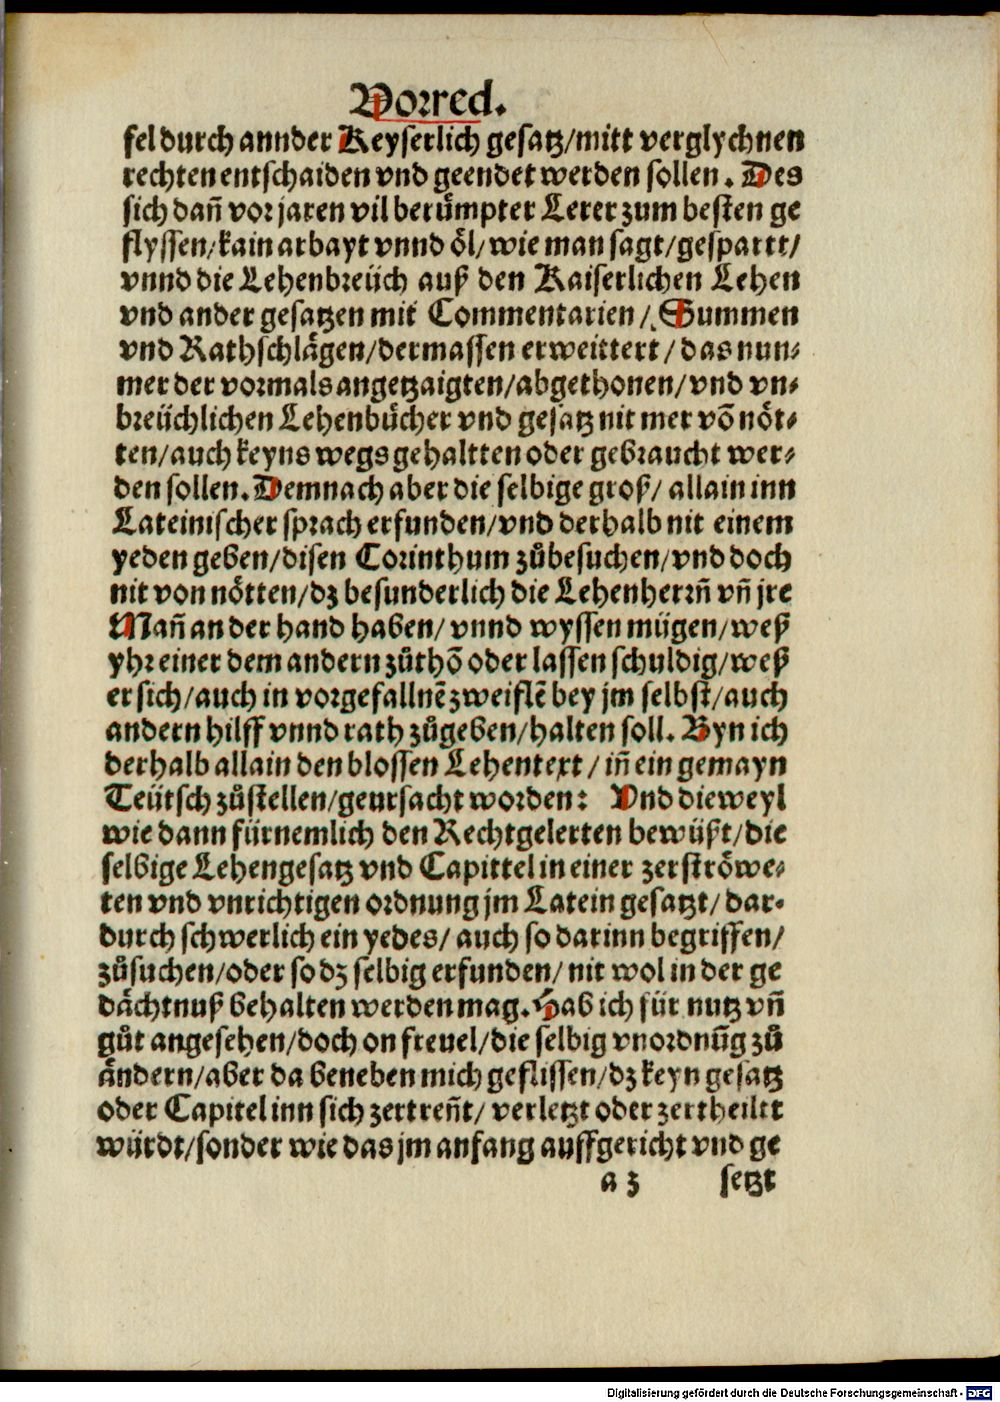 Vorred.
fel durch annder Keyserlich gesatz/mitt verglychnen
rechten entschaiden vnd geendet werden sollen. Des
sich dañ vor jaren vil berümpter Lerer zum besten ge
flyssen/kain arbayt vnnd öl/wie man sagt/gespartt/
vnnd die Lehenbreüch auß den Kaiserlichen Lehen
vnd ander gesatzen mit Commentarien/Summen
vnd Rathschlägen/dermassen erweittert/das nun⸗
mer der vormals angetzaigten/abgethonen/vnd vn⸗
breüchlichen Lehenbücher vnd gesatz nit mer võ nöt⸗
ten/auch keyns wegs gehaltten oder gebraucht wer⸗
den sollen. Demnach aber die selbige groß/allain inn
Lateinischer sprach erfunden/vnd derhalb nit einem
yeden geben/disen Corinthum zůbesuchen/vnd doch
nit von nötten/dz besunderlich die Lehenherrñ vñ jre
Mañ an der hand haben/vnnd wyssen mügen/weß
yhr einer dem andern zůthõ oder lassen schuldig/weß
er sich/auch in vorgefallnẽ zweiflẽ bey jm selbst/auch
andern hilff vnnd rath zůgeben/halten soll. Byn ich
derhalb allain den blossen Lehentext/iñ ein gemayn
Teütsch zůstellen/geursacht worden: Vnd dieweyl
wie dann fürnemlich den Rechtgelerten bewüßt/die
selbige Lehengesatz vnd Capittel in einer zerströwe⸗
ten vnd vnrichtigen ordnung jm Latein gesatzt/dar⸗
durch schwerlich ein yedes/auch so darinn begriffen/
zůsuchen/oder so dz selbig erfunden/nit wol in der ge
dächtnuß behalten werden mag. Hab ich für nutz vñ
gůt angesehen/doch on freuel/die selbig vnordnũg zů
ändern/aber da beneben mich geflissen/dz keyn gesatz
oder Capitel inn sich zertreñt/verletzt oder zertheiltt
würdt/sonder wie das jm anfang auffgericht vnd ge
a 3 setzt
Digitalisierung gefördert durch die Deutsche Forschungsgemeinschaft - DFG